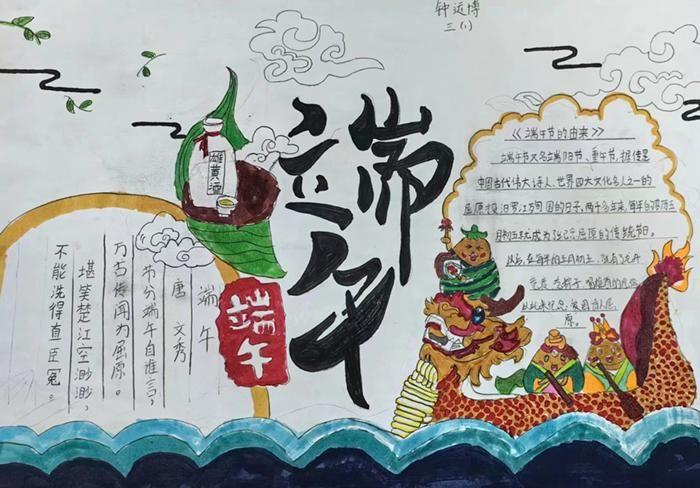 钟运博
三(1)
端午
雄黄酒
端午
端午
唐 文秀
节分端午自谁言,
万古传闻为屈原。
堪笑楚江空渺渺,
不能洗得直臣冤。
《端午节的由来》
端午节又名端阳节、重午节,据传是
中国古代伟大诗人、世界四大文化名人之一的
屈原投汨罗江殉国的日子,两千多年来,每年的农历五
月初五就成为了纪念屈原的传统节日。
从此,在每年的五月初五,
以此来纪念爱国诗人屈
原。